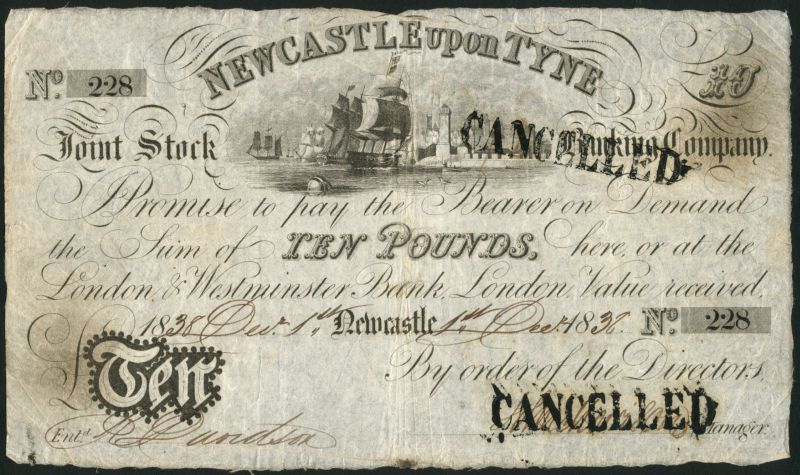 NEWCASTLE upon TYNE
No. 228
10
Joint Stock Banking Company.
CANCELLED
I Promise to pay the Bearer on Demand
the Sum of TEN POUNDS, here, or at the
London & Westminster Bank, London, Value received,
1838 Decr. 1st Newcastle 1st Decr. 1838. No. 228
£ Ten
By order of the Directors,
CANCELLED
Entd. R Davidson Manager.